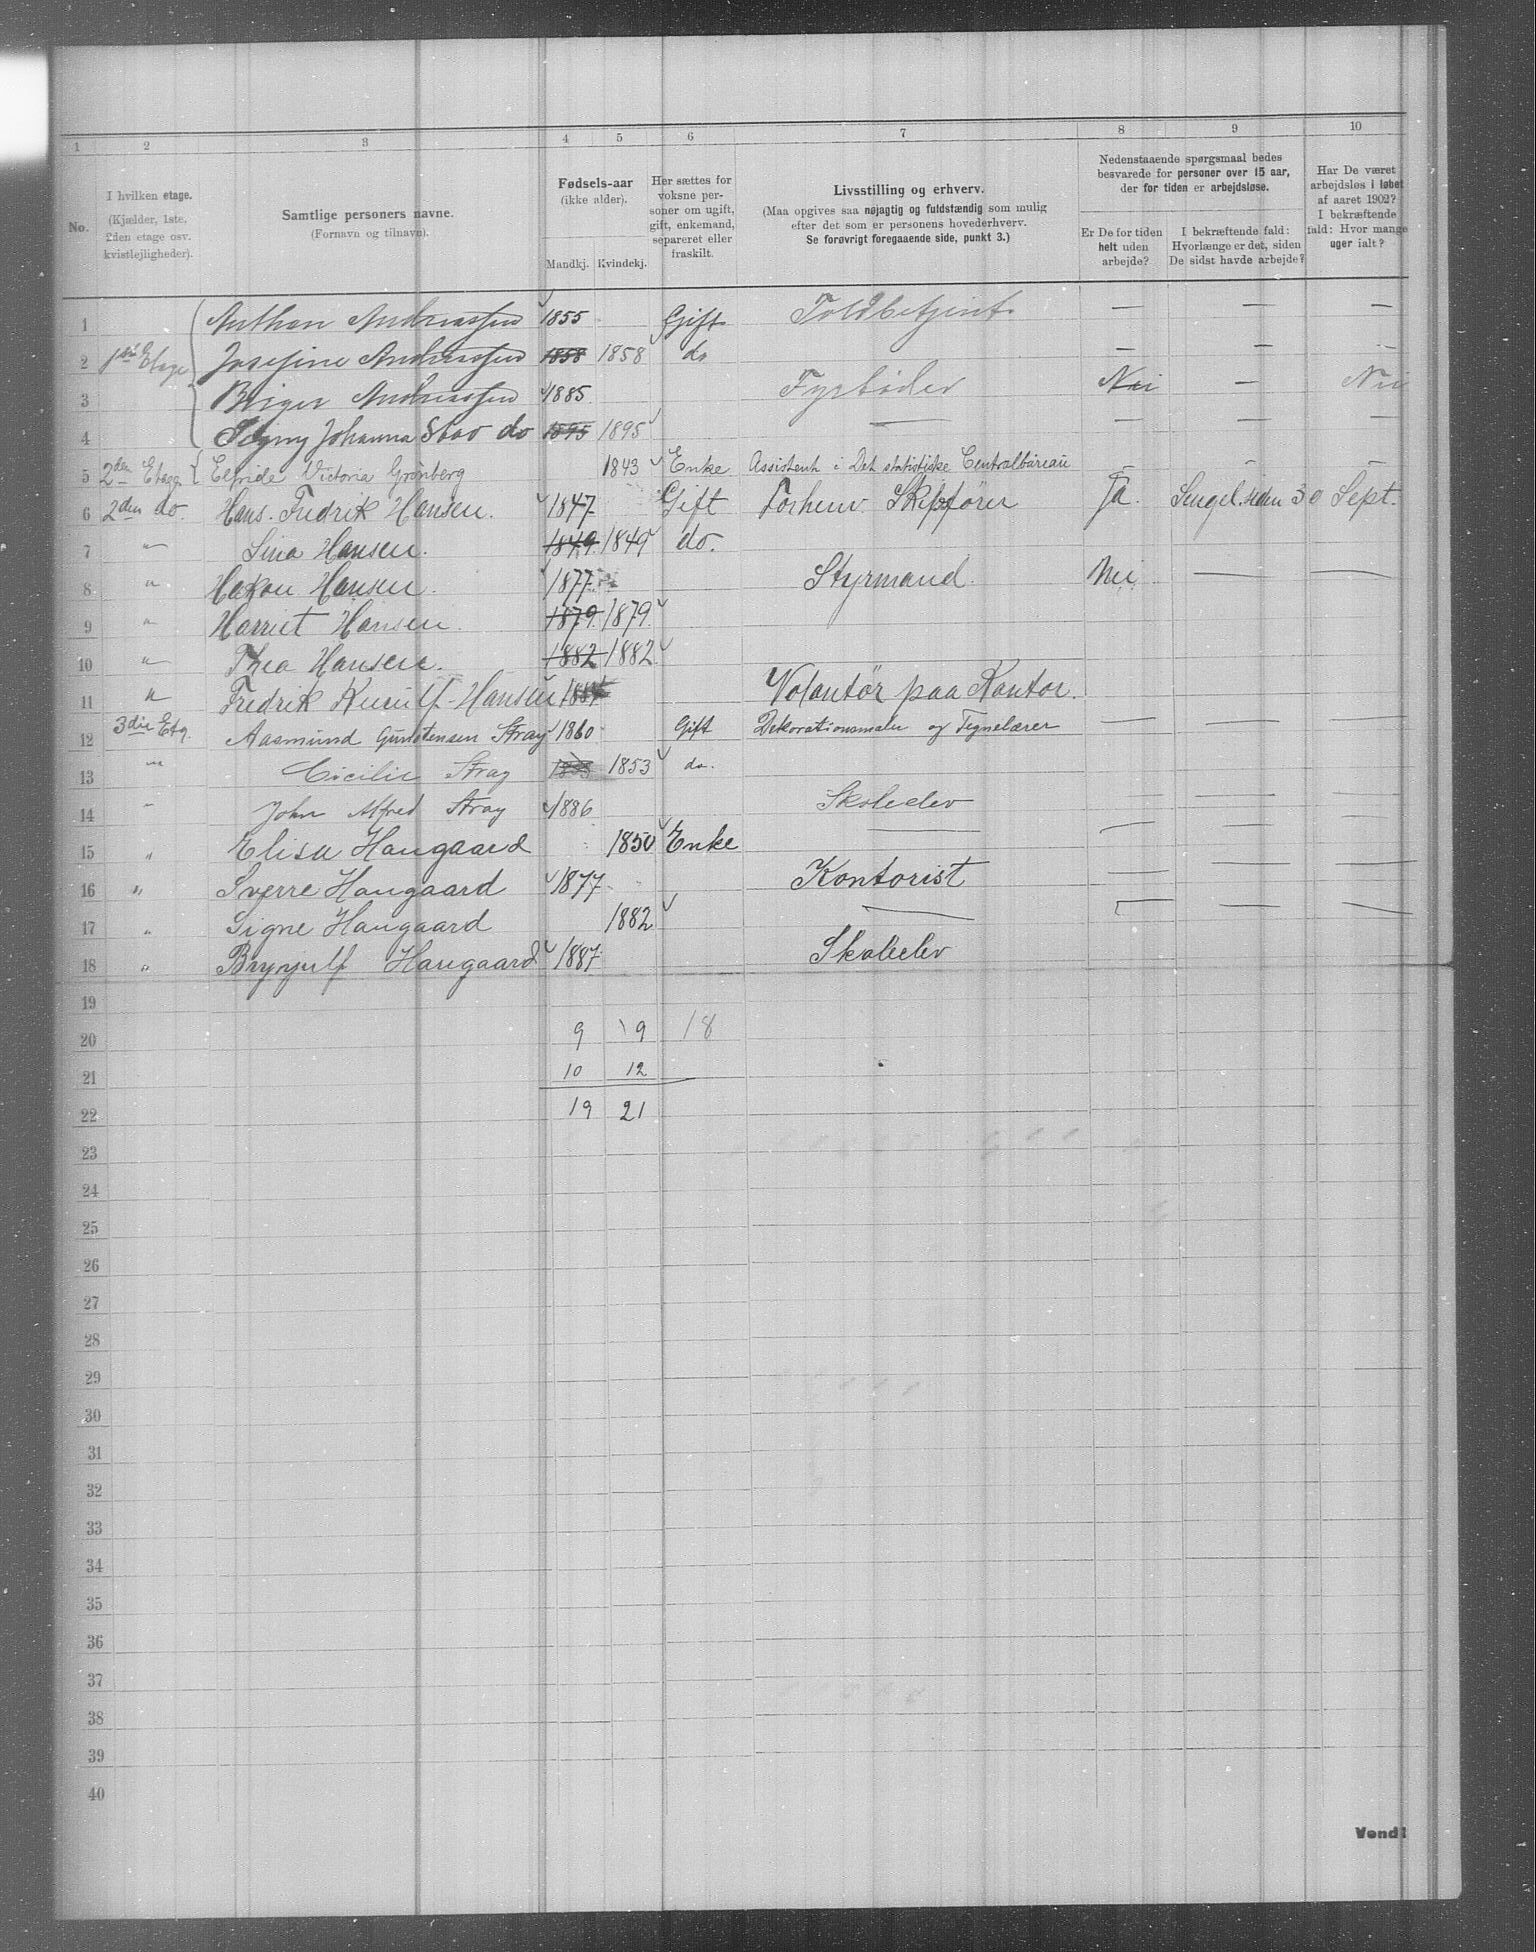 1 2 3 4 5 6 7 8 9 10
No.
I hvilken etage.
(Kjælder, 1ste, 2den etage osv. kvistlejligheder).
Samtlige personers navne.
(Fornavn og tilnavn).
Fødsels-aar
(ikke alder).
Mandkj. Kvindekj.
Her sættes for voksne personer om ugift, gift, enkemand, separeret eller fraskilt.
Livsstilling og erhverv.
(Maa opgives saa nøjagtig og fuldstændig som mulig efter det som er personens hovederhverv.
Se forøvrigt foregaaende side, punkt 3.)
Nedenstaaende spørgsmaal bedes besvarede for personer over 15 aar, der for tiden er arbejdsløse.
Er De for tiden helt uden arbejde?
I bekræftende fald: Hvorlænge er det, siden De sidst havde arbejde?
Har De været arbejdsløs i løbet af aaret 1902? I bekræftende fald: Hvor mange uger ialt?
1 Anthon Andreassen 1855 Gift Toldbetjent — — —
2 1ste Etage Josefine Andreassen 1858 1858 do — — —
3 Birger Andreassen 1885 Fyrbøder Nei — Nei
4 Johanna do 1895 1895 — — — —
5 2den Etage Elfride Victoria Grønberg 1843 Enke Assistent i Det statistiske Centralbureau — — —
6 2den do. Hans Fredrik Hansen. 1847 Gift Forhenv. Skibsfører Ja. siden 30 Sept.
7 " Lina Hansen. 1849 1849 do.
8 " Hakon Hansen. 1877 Styrmand. Nei. — —
9 " Harriet Hansen. 1879 1879
10 " Thea Hansen. 1882 1882
11 " Fredrik Hansen Volontør paa Kontor.
12 3die Etg. Aasmund Gunstensen Stray 1860 Gift Dekorationsmaler og Tegnelærer — — —
13 " Cicilie Stray 1853 do.
14 " John Alfred Stray 1886 Skoleelev — — —
15 " Elisa Haugaard 1850 Enke — — — —
16 " Sverre Haugaard 1877 Kontorist — — —
17 " Signe Haugaard 1882 — — — —
18 " Brynjulf Haugaard 1887 Skoleelev
19
20 9 9 18
21 10 12
22 19 21
23
24
25
26
27
28
29
30
31
32
33
34
35
36
37
38
39
40
Vend!